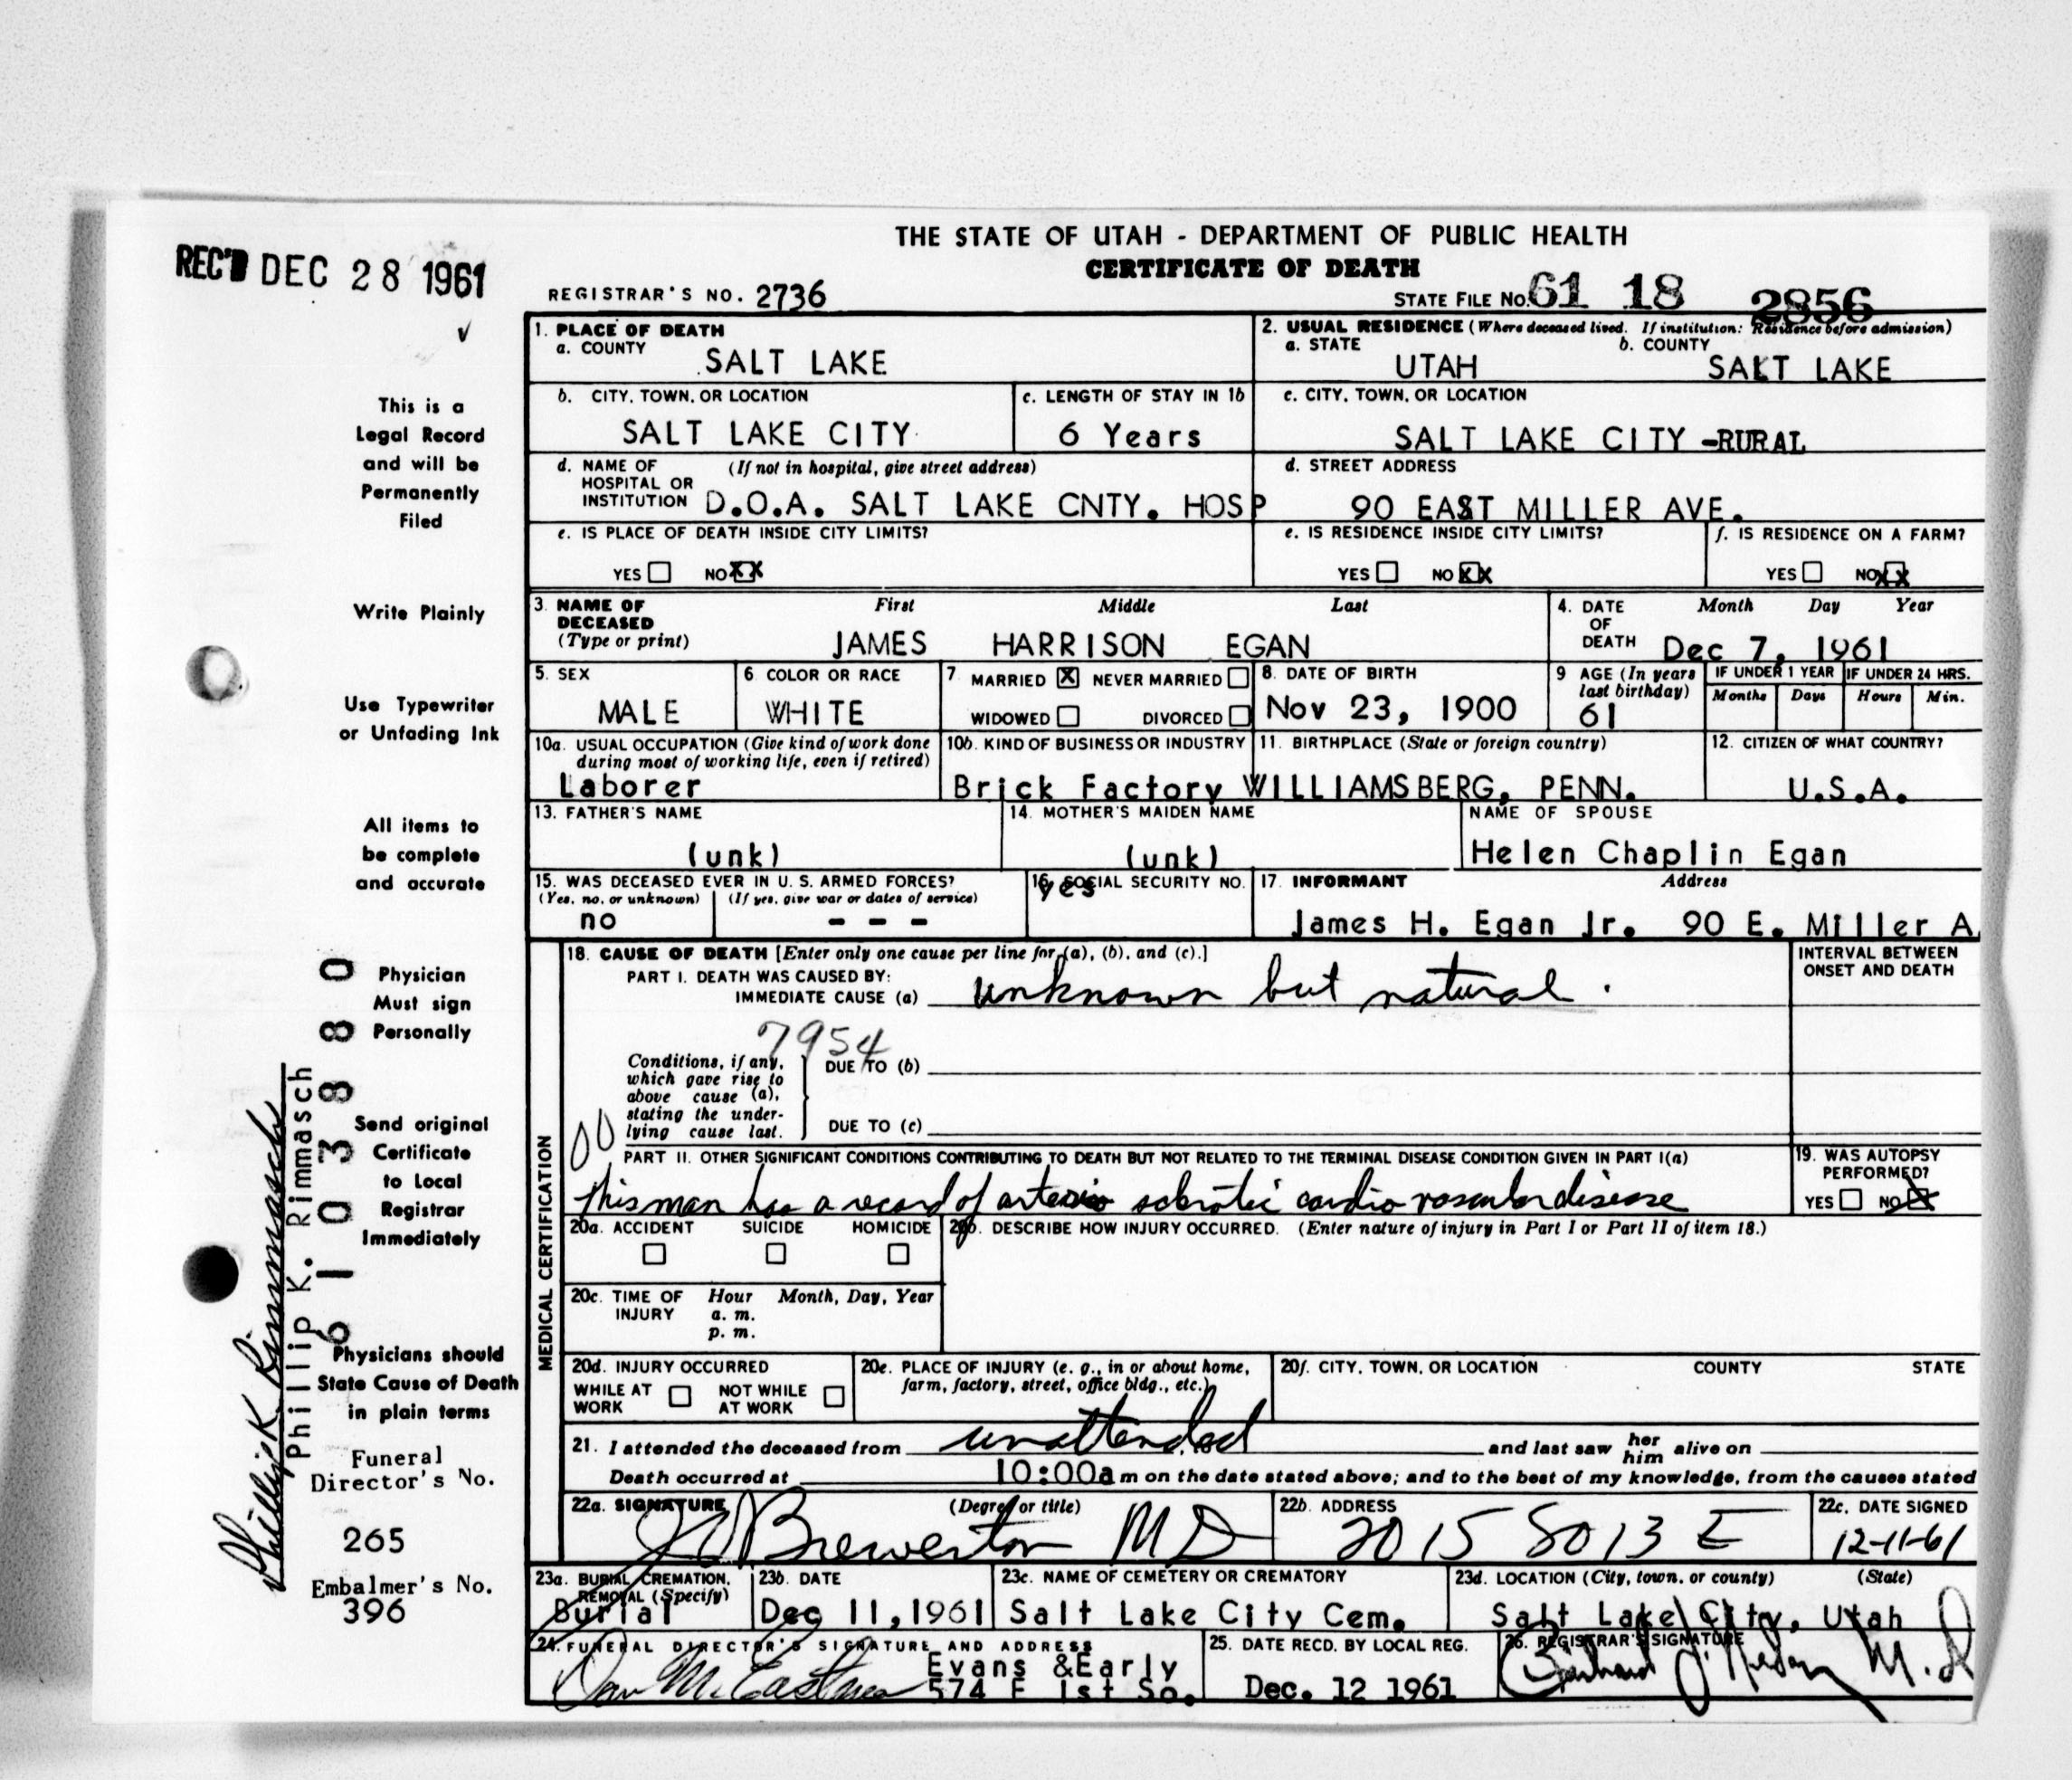 THE STATE OF UTAH - DEPARTMENT OF PUBLIC HEALTH
CERTIFICATE OF DEATH
REC'D DEC 28 1961
REGISTRAR'S NO. 2736
STATE FILE NO. 61 18 2856
1. PLACE OF DEATH
a. COUNTY
SALT LAKE
2. USUAL RESIDENCE (Where deceased lived. If institution: Residence before admission)
a. STATE b. COUNTY
UTAH SALT LAKE
b. CITY, TOWN, OR LOCATION
SALT LAKE CITY
c. LENGTH OF STAY IN 1b
6 Years
c. CITY, TOWN, OR LOCATION
SALT LAKE CITY -RURAL
d. NAME OF HOSPITAL OR INSTITUTION (If not in hospital, give street address)
D.O.A. SALT LAKE CNTY. HOSP
d. STREET ADDRESS
90 EAST MILLER AVE.
e. IS PLACE OF DEATH INSIDE CITY LIMITS?
YES NO XX
e. IS RESIDENCE INSIDE CITY LIMITS?
YES NO XX
f. IS RESIDENCE ON A FARM?
YES NO XX
3. NAME OF DECEASED (Type or print)
First Middle Last
JAMES HARRISON EGAN
4. DATE OF DEATH Month Day Year
Dec 7, 1961
5. SEX
MALE
6 COLOR OR RACE
WHITE
7 MARRIED X NEVER MARRIED
WIDOWED DIVORCED
8. DATE OF BIRTH
Nov 23, 1900
9 AGE (In years last birthday)
61
IF UNDER 1 YEAR IF UNDER 24 HRS.
Months Days Hours Min.
10a. USUAL OCCUPATION (Give kind of work done during most of working life, even if retired)
Laborer
10b. KIND OF BUSINESS OR INDUSTRY
Brick Factory
11. BIRTHPLACE (State or foreign country)
WILLIAMSBERG, PENN.
12. CITIZEN OF WHAT COUNTRY?
U.S.A.
13. FATHER'S NAME
(unk)
14. MOTHER'S MAIDEN NAME
(unk)
NAME OF SPOUSE
Helen Chaplin Egan
15. WAS DECEASED EVER IN U. S. ARMED FORCES?
(Yes, no, or unknown) (If yes, give war or dates of service)
no - - -
16. SOCIAL SECURITY NO.
yes
17. INFORMANT Address
James H. Egan Jr. 90 E. Miller A
MEDICAL CERTIFICATION
18. CAUSE OF DEATH [Enter only one cause per line for (a), (b), and (c).]
PART I. DEATH WAS CAUSED BY:
IMMEDIATE CAUSE (a) unknown but natural.
INTERVAL BETWEEN ONSET AND DEATH
7954
Conditions, if any, which gave rise to above cause (a), stating the underlying cause last.
DUE TO (b)
DUE TO (c)
00
PART II. OTHER SIGNIFICANT CONDITIONS CONTRIBUTING TO DEATH BUT NOT RELATED TO THE TERMINAL DISEASE CONDITION GIVEN IN PART I(a)
This man has a record of arterio sclrotic cardio vascular disease
19. WAS AUTOPSY PERFORMED?
YES NO X
20a. ACCIDENT SUICIDE HOMICIDE
20b. DESCRIBE HOW INJURY OCCURRED. (Enter nature of injury in Part I or Part II of item 18.)
20c. TIME OF INJURY Hour Month, Day, Year
a. m.
p. m.
20d. INJURY OCCURRED
WHILE AT WORK NOT WHILE AT WORK
20e. PLACE OF INJURY (e. g., in or about home, farm, factory, street, office bldg., etc.)
20f. CITY, TOWN, OR LOCATION COUNTY STATE
21. I attended the deceased from unattended and last saw her him alive on
Death occurred at 10:00a m on the date stated above; and to the best of my knowledge, from the causes stated
22a. SIGNATURE (Degree or title)
Brewerton MD
22b. ADDRESS
2015 So 13 E
22c. DATE SIGNED
12-11-61
23a. BURIAL, CREMATION, REMOVAL (Specify)
Burial
23b. DATE
Dec 11, 1961
23c. NAME OF CEMETERY OR CREMATORY
Salt Lake City Cem.
23d. LOCATION (City, town, or county) (State)
Salt Lake City, Utah
24. FUNERAL DIRECTOR'S SIGNATURE AND ADDRESS
Evans &Early
574 E 1st So.
25. DATE RECD. BY LOCAL REG.
Dec. 12 1961
26. REGISTRAR'S SIGNATURE
M.D
This is a
Legal Record
and will be
Permanently
Filed
Write Plainly
Use Typewriter
or Unfading Ink
All items to
be complete
and accurate
Physician
Must sign
Personally
Send original
Certificate
to Local
Registrar
Immediately
Physicians should
State Cause of Death
in plain terms
Funeral
Director's No.
265
Embalmer's No.
396
Phillip K. Rimmasch
Phillip K. Rimmasch
61 03880